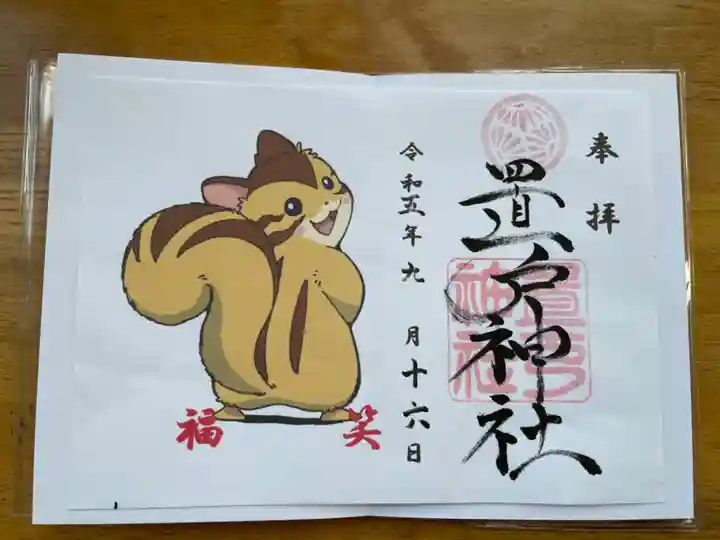 奉拝
置戸神社
置戸神社
令和五年九月十六日
笑福